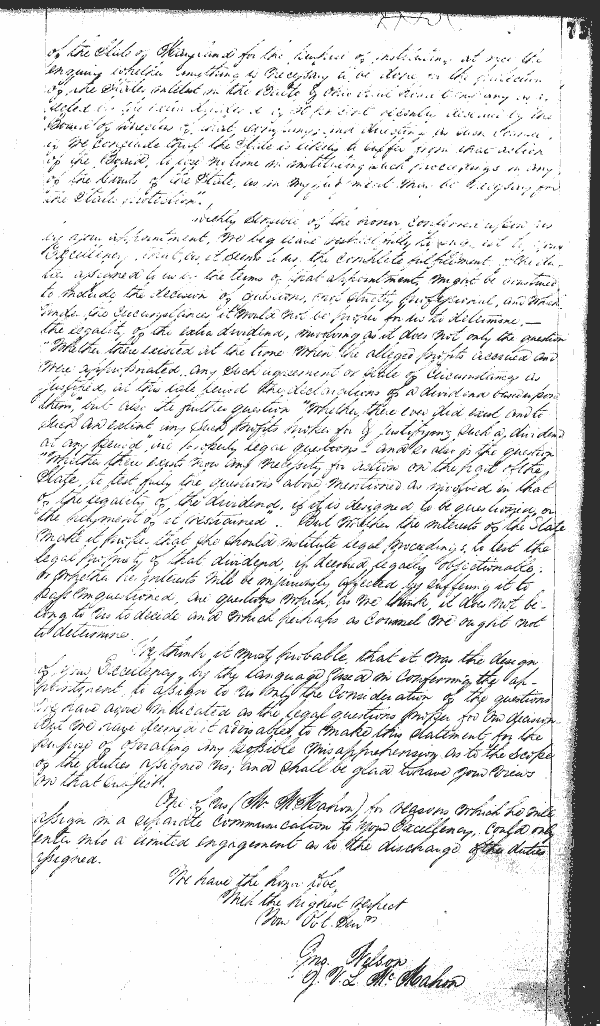 75
of the State of Maryland for the purpose of instituting at once the
enquiry whether anything is necessary to be done for the protection
of the State's interest in the Balto & Ohio Rail Road Company as
by the extra dividend of recently declared by the
Board of Directors of that Company and directing us in such
if we conclude that the State is likely to suffer from that action
of the Board, to lose no time in instituting such proceedings in any
of the Courts of the State, as in my judgment may be necessary for
the State's protection."
sensible of the honor conferred upon us
by your appointment, we beg leave respectfully to suggest to your
Excellency, that as it seems to us, the complete fulfilment of the du-
ties assigned to us by the terms of that appointment, might be construed
to include the decision of questions, not strictly professional, and which
under the circumstances it would not be proper for us to determine.—
the legality of the extra dividend, involving as it does not only the question
"Whether there existed at the time when the alleged profits accrued and
were appropriated, any such agreement or state of circumstances as
justified, at this late period the declarations of a dividend based upon
them," but also the further question "Whether there ever did exist and to
such an extent any such profits
at any period" are properly legal questions - and so also is the question
"Whether there exists now any necessity for action on the part of the
State, to test fully the questions above mentioned as involved in that
of the legality of the dividend, if it is designed to be questioned or
the payment of it restrained". But whether the interests of the State
make it proper that she should institute legal proceedings, to test the
legal propriety of that dividend, if deemed legally objectionable;
or whether her interests will be injuriously affected by suffering it to
pass unquestioned, are questions which, as we think, it does not be-
long to us to decide and which perhaps as Counsel we ought not
to determine.
We think it most probable, that it was the design
of your Excellency, by the language used in conferring the ap-
pointment, to assign to us only the consideration of the questions
we have above indicated as the legal questions proper for our decision
But we have deemed it advisable to make this statement for the
purpose of obviating any possible misapprehension as to the scope
of the duties assigned us; and shall be glad to have your views
on that subject.
One of us (Mr McMahon) for reasons which he will
assign in a separate communication to your Excellency, could only
enter into a limited engagement as to the discharge of the duties
assigned.
We have the honor to be,
With the highest respect
Your Obt. Servts
Jno. Nelson
J. V. L. McMahon